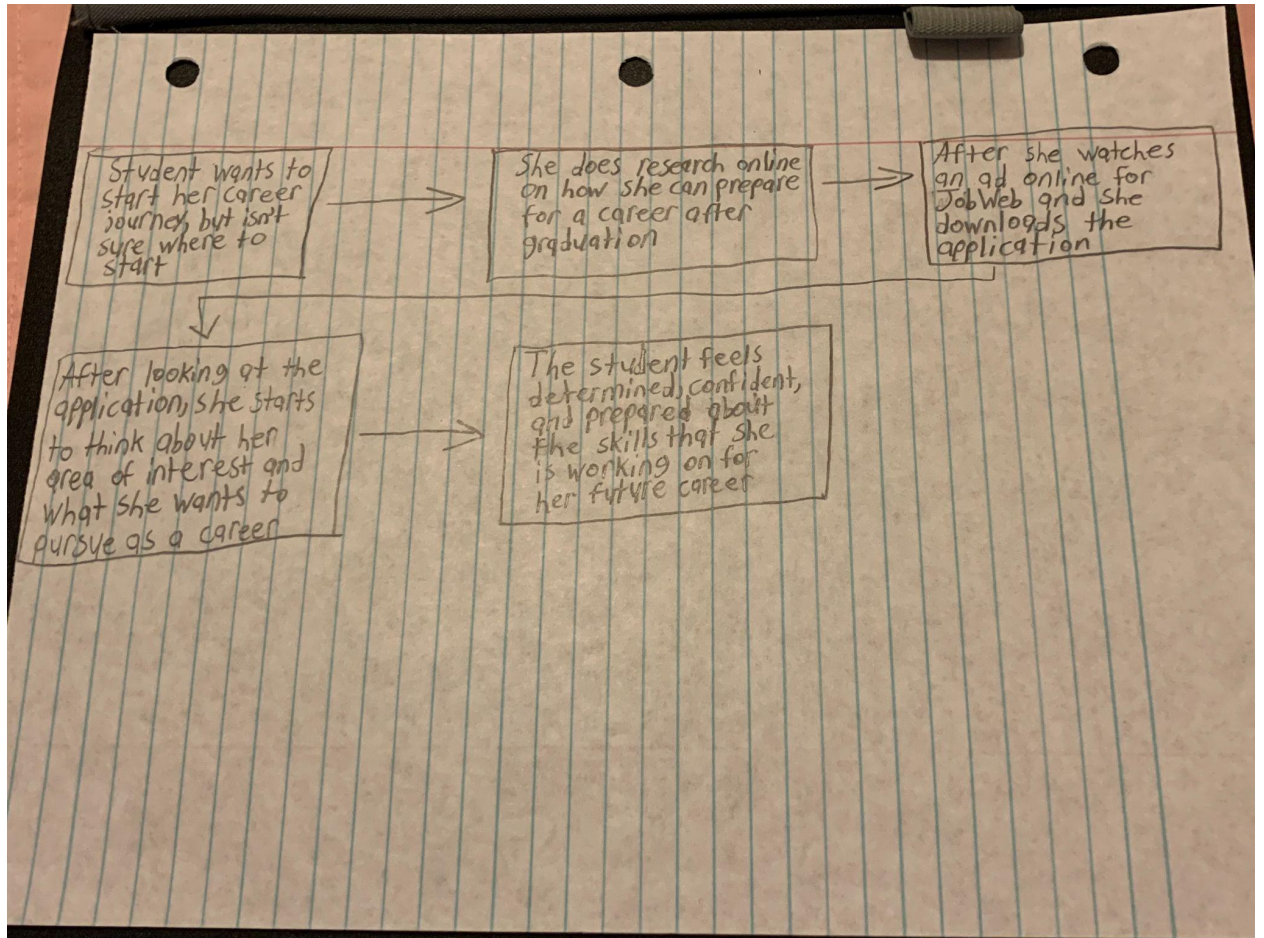 Student wants to
start her career
journey, but isn't
sure where to
start
She does research online
on how she can prepare
for a career after
graduation
After she watches
an ad online for
JobWeb and she
downloads the
application
After looking at the
application, she starts
to think about her
area of interest and
what she wants to
pursue as a career
The student feels
determined, confident,
and prepared about
the skills that she
is working on for
her future career